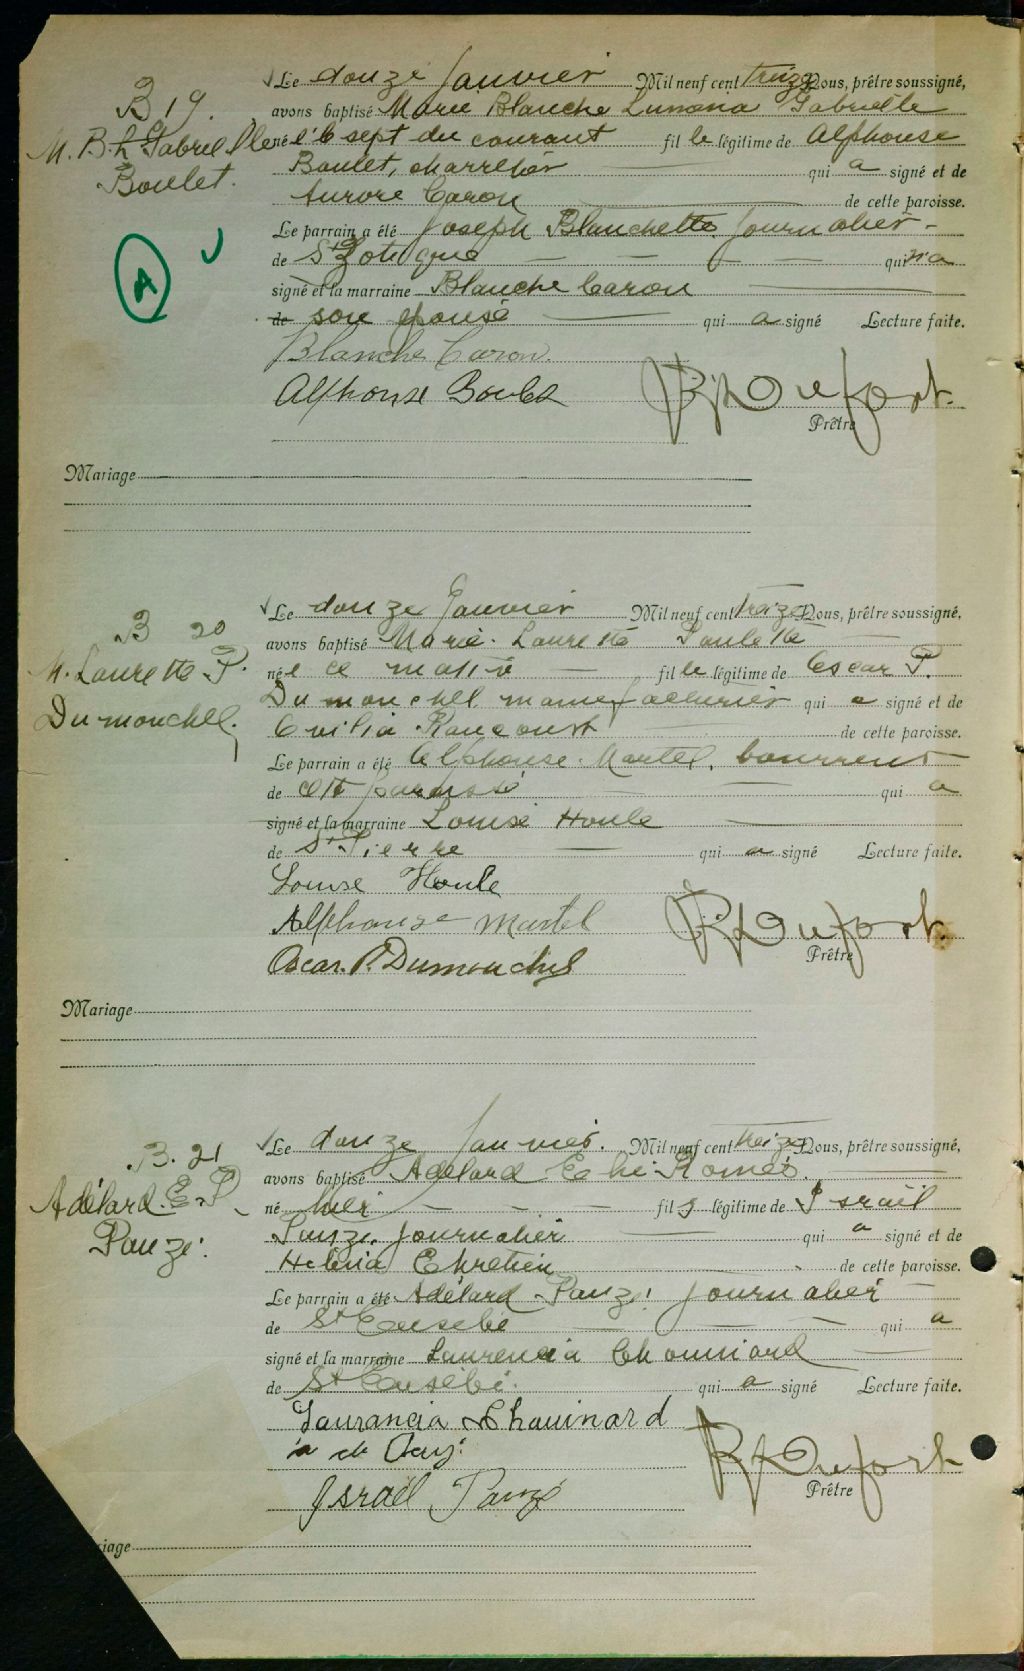 B 19.
M. B. L. Gabrielle
Boulet.
A
Le douze Janvier Mil neuf cent treize Nous, prêtre soussigné,
avons baptisé Marie Blanche Lumena Gabrielle
né e le sept du courant fil le légitime de Alphonse
Boulet, charretier qui a signé et de
Aurore Caron de cette paroisse.
Le parrain a été Joseph Blanchette journalier
de St Zotique qui n'a
signé et la marraine Blanche Caron
de son épouse qui a signé Lecture faite.
Blanche Caron.
Alphonse Boulet
Dufort. Prêtre
Mariage
B 20
M. Laurette P.
Dumouchel.
Le douze Janvier Mil neuf cent treize Nous, prêtre soussigné,
avons baptisé Marie Laurette Paulette
né e ce matin fil le légitime de Oscar P.
Dumouchel manufacturier qui a signé et de
Rancourt de cette paroisse.
Le parrain a été Alphonse Martel,
de cette paroisse qui a
signé et la marraine Louise Houle
de St Pierre qui a signé Lecture faite.
Louise Houle
Alphonse Martel
Oscar. P. Dumouchel
Dufort. Prêtre
Mariage
B. 21
Adélard. E. P.
Pauzé.
Le douze Janvier. Mil neuf cent treize Nous, prêtre soussigné,
avons baptisé Adélard Roméo
né hier fil s légitime de Israël
Pauzé, journalier qui a signé et de
Helena Chretien de cette paroisse.
Le parrain a été Adélard Pauzé journalier
de St Eusebe qui a
signé et la marraine Laurencia Chouinard
de St Eusèbe. qui a signé Lecture faite.
Laurancia Chouinard
Israël Pauzé
Dufort Prêtre
riage